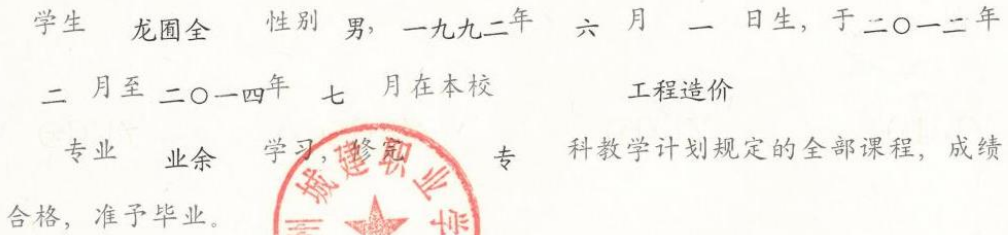 学生 龙囿全 性别 男, 一九九二年 六 月 一 日生, 于二〇一二年
二 月至 二〇一四年 七 月在本校 工程造价
专业 业余 学习, 修完 专 科教学计划规定的全部课程, 成绩
合格, 准予毕业。
州城建职业学